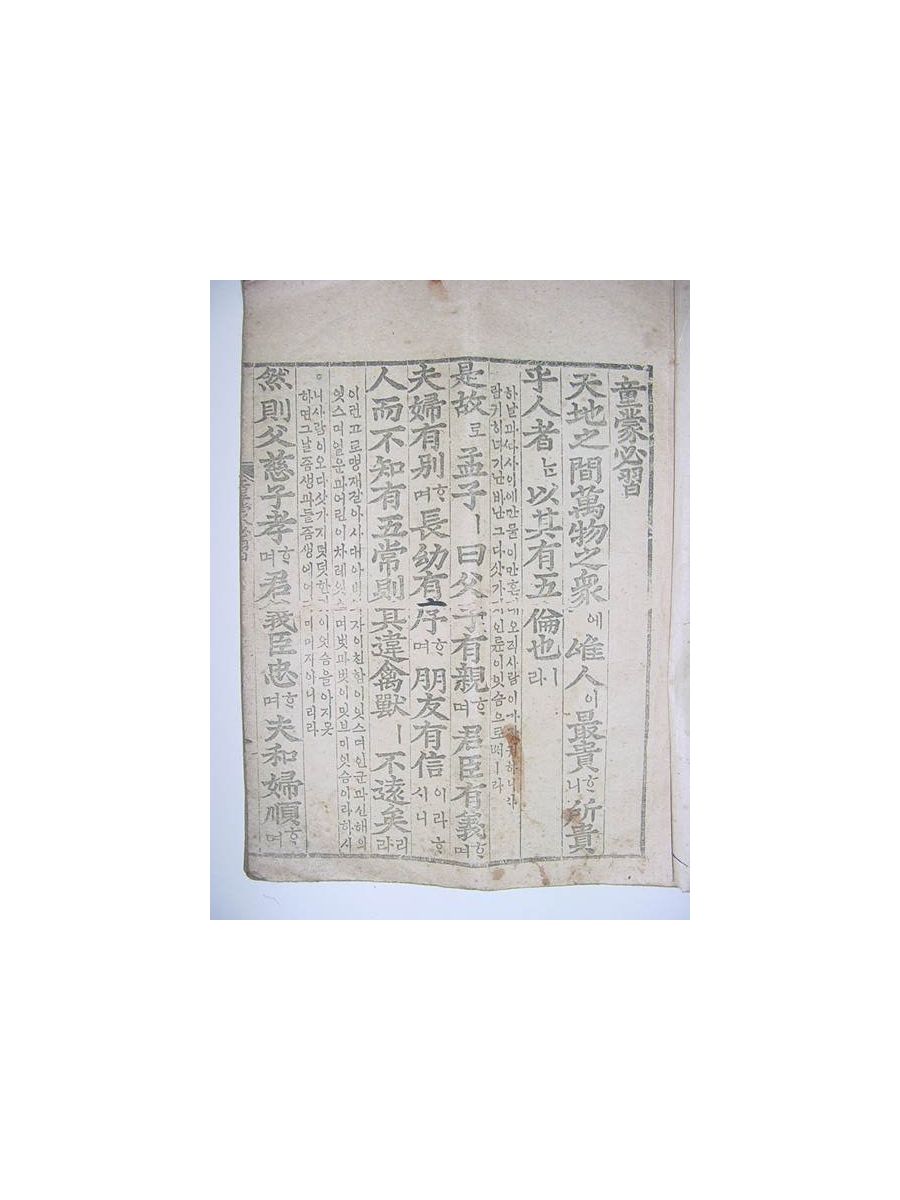 童蒙必習
天地之間萬物之衆에 唯人이 最貴ᄒᆞ니 所貴
乎人者ᄂᆞᆫ 以其有五倫也ㅣ라
하날과 사이에 만물이 만흔 오직 사람이
람 귀히 녀기난 바난 그 다삿가 인륜이 잇슴으로ㅣ라
是故로 孟子ㅣ 曰 父子有親ᄒᆞ며 君臣有義ᄒᆞ며
夫婦有別ᄒᆞ며 長幼有序ᄒᆞ며 朋友有信이라 ᄒᆞ시니
人而不知有五常則其違禽獸ㅣ 不遠矣리라
이런고로 맹자 갈아사대 아비 자이 친함이 잇스며 인군과 신해의
잇스며 얼운과 어린이 차례 잇스며 벗과 벗이 밋브미 잇슴이라 하시
니 사람이 오 다삿가지 떳떳한 이 잇슴을 아지 못
하면 그 날즘생과 들즘생에 머자 아니리라
然則父慈子孝ᄒᆞ며 君義臣忠ᄒᆞ며 夫和婦順ᄒᆞ며